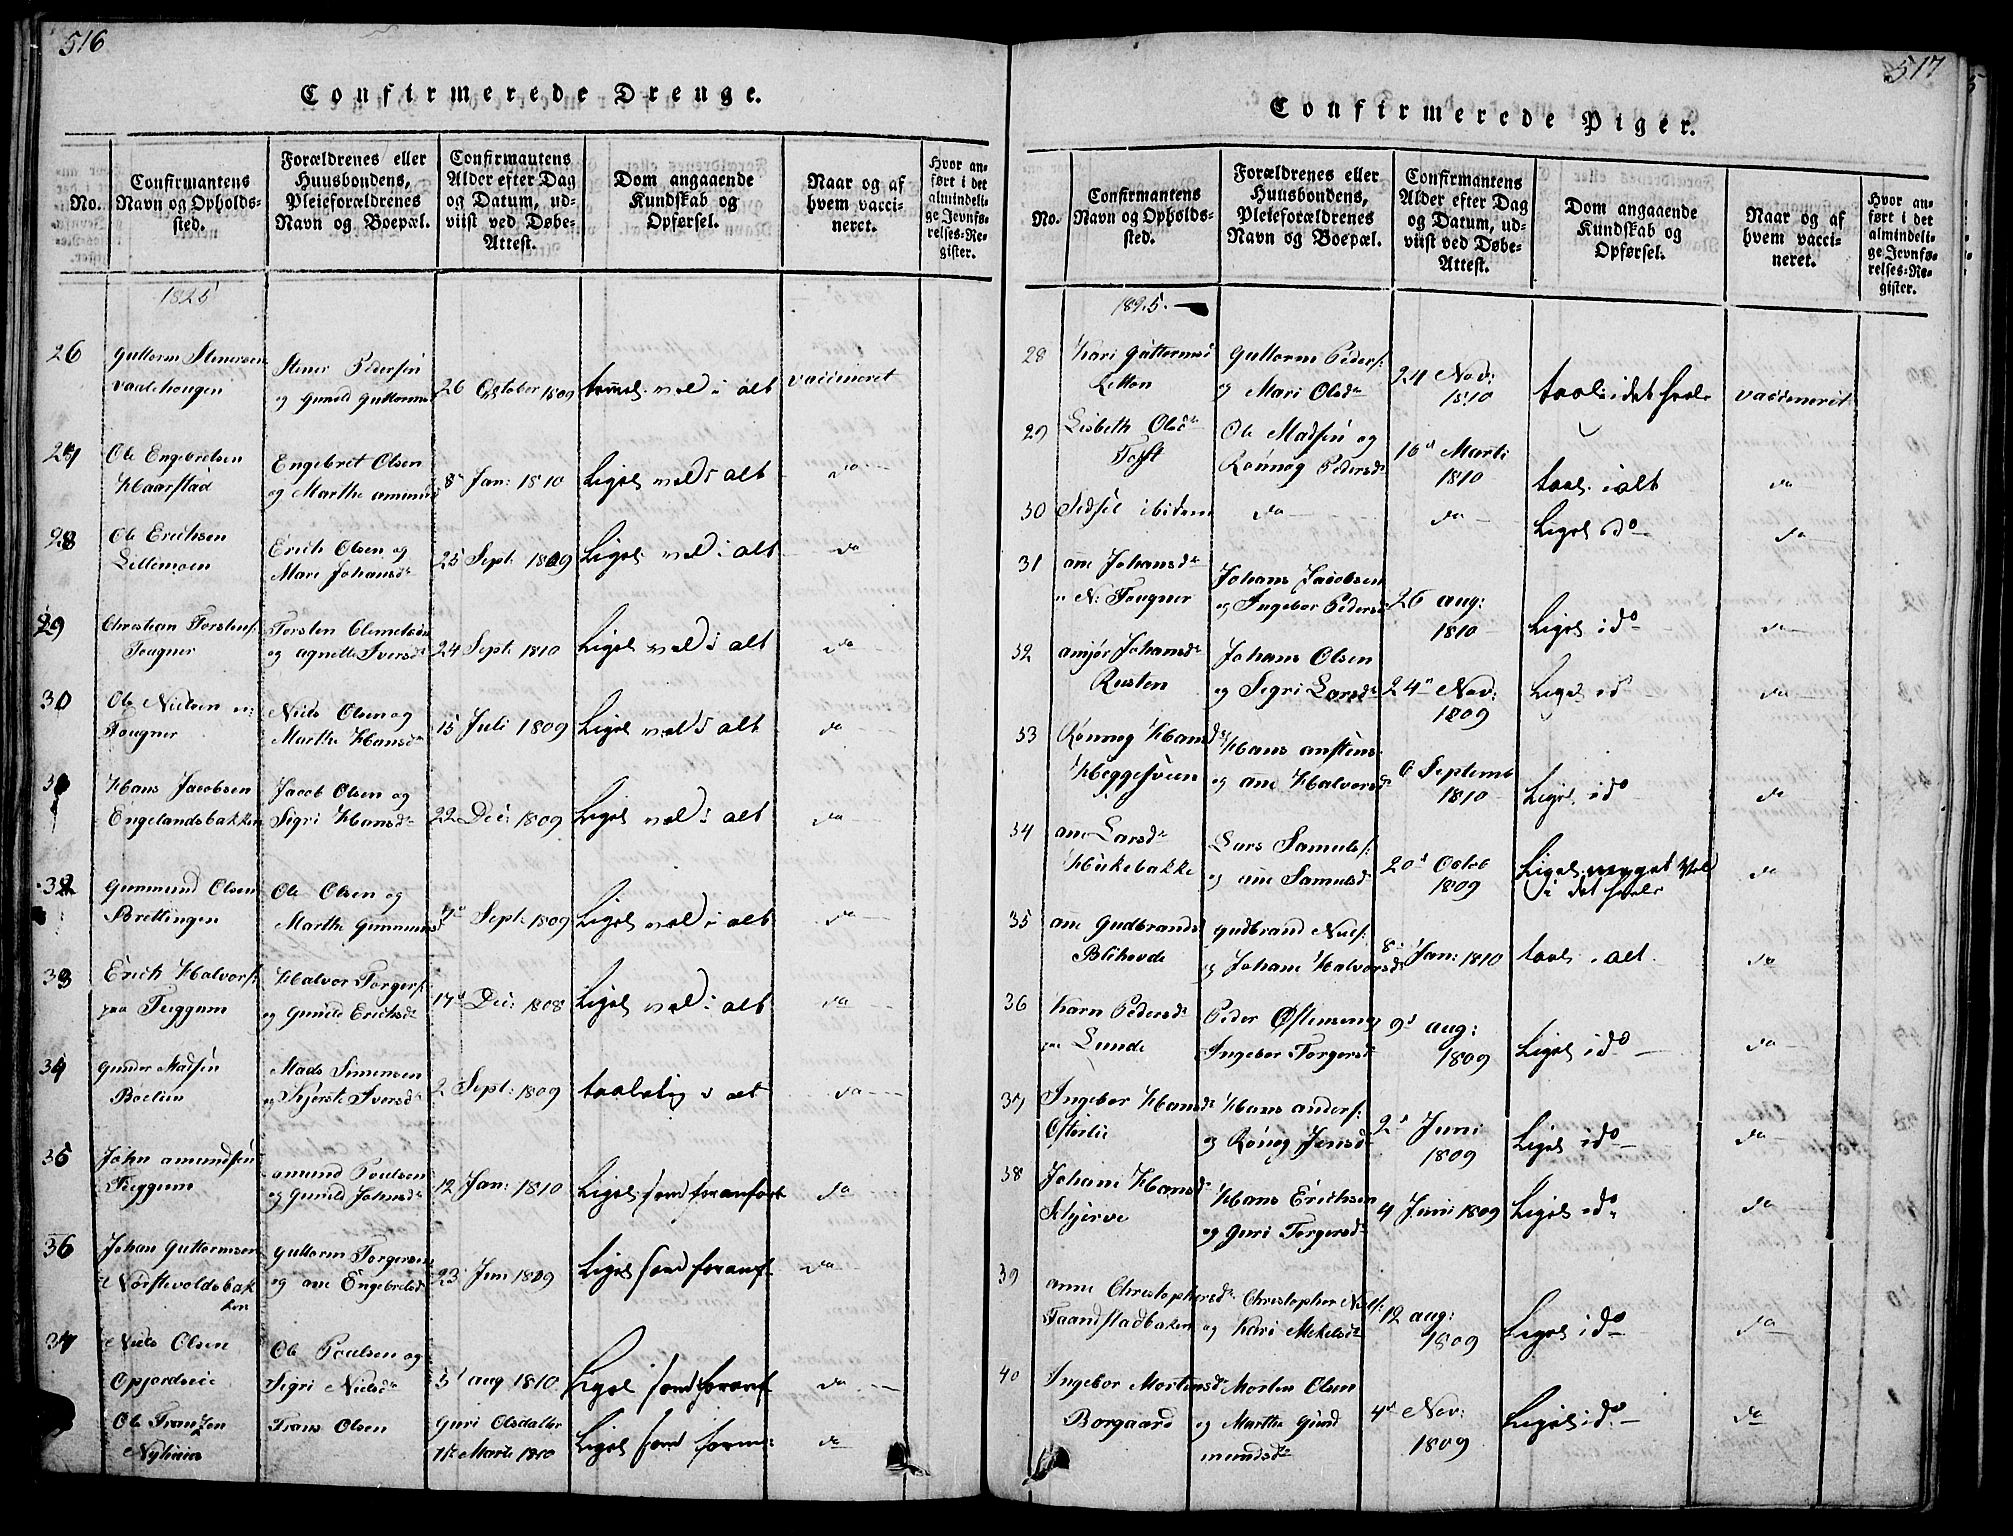 516
Confirmerede Drenge.
No.
Confirmantens
Navn og Opholds-
sted.
Forældrenes eller
Huusbondens,
Pleieforældrenes
Navn og Boepæl.
Confirmantens
Alder efter Dag
og Datum, ud-
viist ved Døbe-
Attest.
Dom angaaende
Kundskab og
Opførsel.
Naar og af
hvem vacci-
neret.
Hvor an-
ført i det
almindeli-
ge Jevnfø-
relses-Re-
gister.
1825
26 Guttorm Stenersen Stener Pedersen
og Gunild Guttorms 26 October 1809 vel i alt vaccineret
27 Ole Engebretsen Engebret Olsen
Haarstad og Marthe 8 Jan: 1810 Ligel. vel i alt do
28 Ole Erichsen Erich Olsen og
Lillemoen Mari Johansd. 25 Sept. 1809 Ligel. vel i alt do
29 Christian Torstens: Torsten Clemetsen
Fougner og Agnethe Iversd. 24 Sept. 1810 Ligel. vel i alt do
30 Ole Nielsen n: Niels Olsen og
Fougner Marthe Hansd. 15 Juli 1809 Ligel. vel i alt do
31 Hans Jacobsen Jacob Olsen og
Engelandsbakken Sigri Hansd. 22 Dec: 1809 Ligel. vel i alt do
32 Gunmund Olsen Ole Olsen og
Brettingen Marthe Gunmunds 7 Sept. 1809 Ligel. vel i alt do
33 Erich Halvors: Halvor Torgers:
paa Tuggum og Gunild Erichsd. 17 Dec: 1808 Ligel. vel i alt do
34 Gunder Madsen Mads Simensen
og Kjersti Iversd. 2 Sept: 1809 taalelig i alt do
35 John Amundsen Amund Poulsen
Tuggum og Gunild Johnsd. 12 Jan: 1810 Ligel. som foranført do
36 Johan Guttormsen Guttorm Torgersen
Norstevoldsbak
ken og Ane Engebretsd. 23 Juni 1809 Ligel. som foranf. do
37 Niels Olsen Ole Poulsen og
Opjordseie Sigri Nielsd. 5 Aug 1810 Ligel. som foranf. do
Ole Franzen Frans Olsen Guri Olsdatter
11te Marti 1810 Ligel. som foran: do
517
Confirmerede Piger.
No.
Confirmantens
Navn og Opholds-
sted.
Forældrenes eller
Huusbondens,
Pleieforældrenes
Navn og Boepæl.
Confirmantens
Alder efter Dag
og Datum, ud-
viist ved Døbe-
Attest.
Dom angaaende
Kundskab og
Opførsel.
Naar og af
hvem vacci-
neret.
Hvor an-
ført i det
almindeli-
ge Jevnfø-
relses-Re-
gister.
1825.
28 Kari Guttormsd Guttorm Peders:
og Mari Olsd. 24 Nov:
1810 taal: i det hele vaccineret
29 Lisbeth Olsd. Ole Madsen og
Toft Rønnog Pedersd. 16 Marti
1810 taal. i alt do
30 Sidsel ibidem do do Ligel. i do do
31 Ane Johansd. Johans Jacobsen
n N: Fougner og Ingebor Pedersd 26 Aug:
1810 Ligel. i do do
32 Amjør Johansd. Johans Olsen
Rusten og Sigri Larsd. 24 Nov:
1809 Ligel. i do do
33 Rønnog Hansd. Hans Anstens:
Heggesveen og Ane Halvorsd. 6 Septemb
1810 Ligel. i do do
34 Ane Larsd. Lars Samuels:
og Ane Samuelsd. 20 Octob
1809 Ligel. meget vel
i det hele do
35 Ane Gudbrands Gudbrand Niels:
Blihovde og Johane Halvorsd. 8 Jan: 1810 taal. i alt. do
36 Karn Pedersd. Peder Østensen og
paa Lunde Ingebor Torgersd. 9 Aug:
1809 Ligel. i do do
37 Ingebor Hansd. Hans Anders:
Østerlie og Rønog Jensd. 2 Juni
1809 Ligel. i do do
38 Johane Hansd. Hans Erichsen
Schjerve og Guri Torgersd. 4 Juni 1809 Ligel. i do do
39 Anne Christophersd. Christopher Niels:
og Kari Mekelsd. 12 Aug:
1809 Ligel. i do do
40 Ingebor Mortensd. Morten Olsen
Borgaard og Marthe Gud
mundsd. 4 Nov:
1809 Ligel. i do do